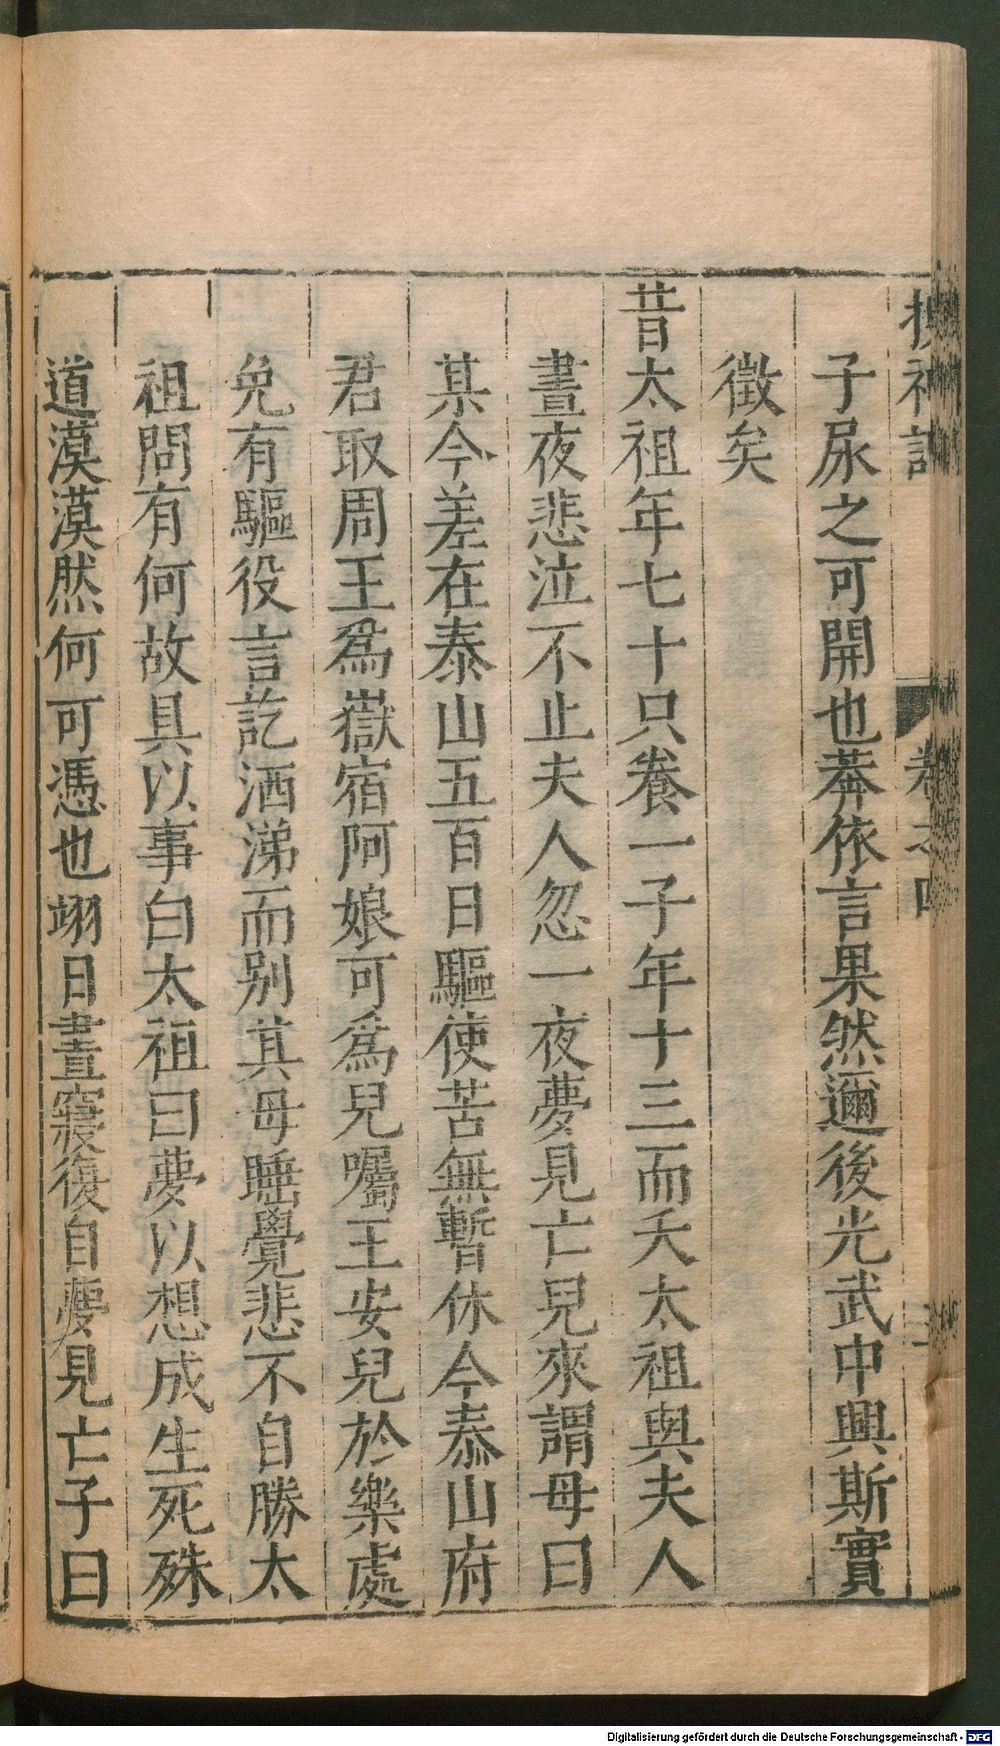 搜神記 卷之四
子尿之可開也莽依言果然邇後光武中興斯實
徵矣
昔太祖年七十只養一子年十三而夭太祖與夫人
晝夜悲泣不止夫人忽一夜夢見亡兒來謂母曰
某今差在泰山五百日驅使苦無暫休今泰山府
君取周王為嶽宿阿娘可為兒囑王安兒於樂處
免有驅役言訖洒涕而別其母睡覺悲不自勝太
祖問有何故具以事白太祖曰夢以想成生死殊
道漠漠然何可憑也翊日晝寢復自夢見亡子曰
Digitalisierung gefördert durch die Deutsche Forschungsgemeinschaft - DFG